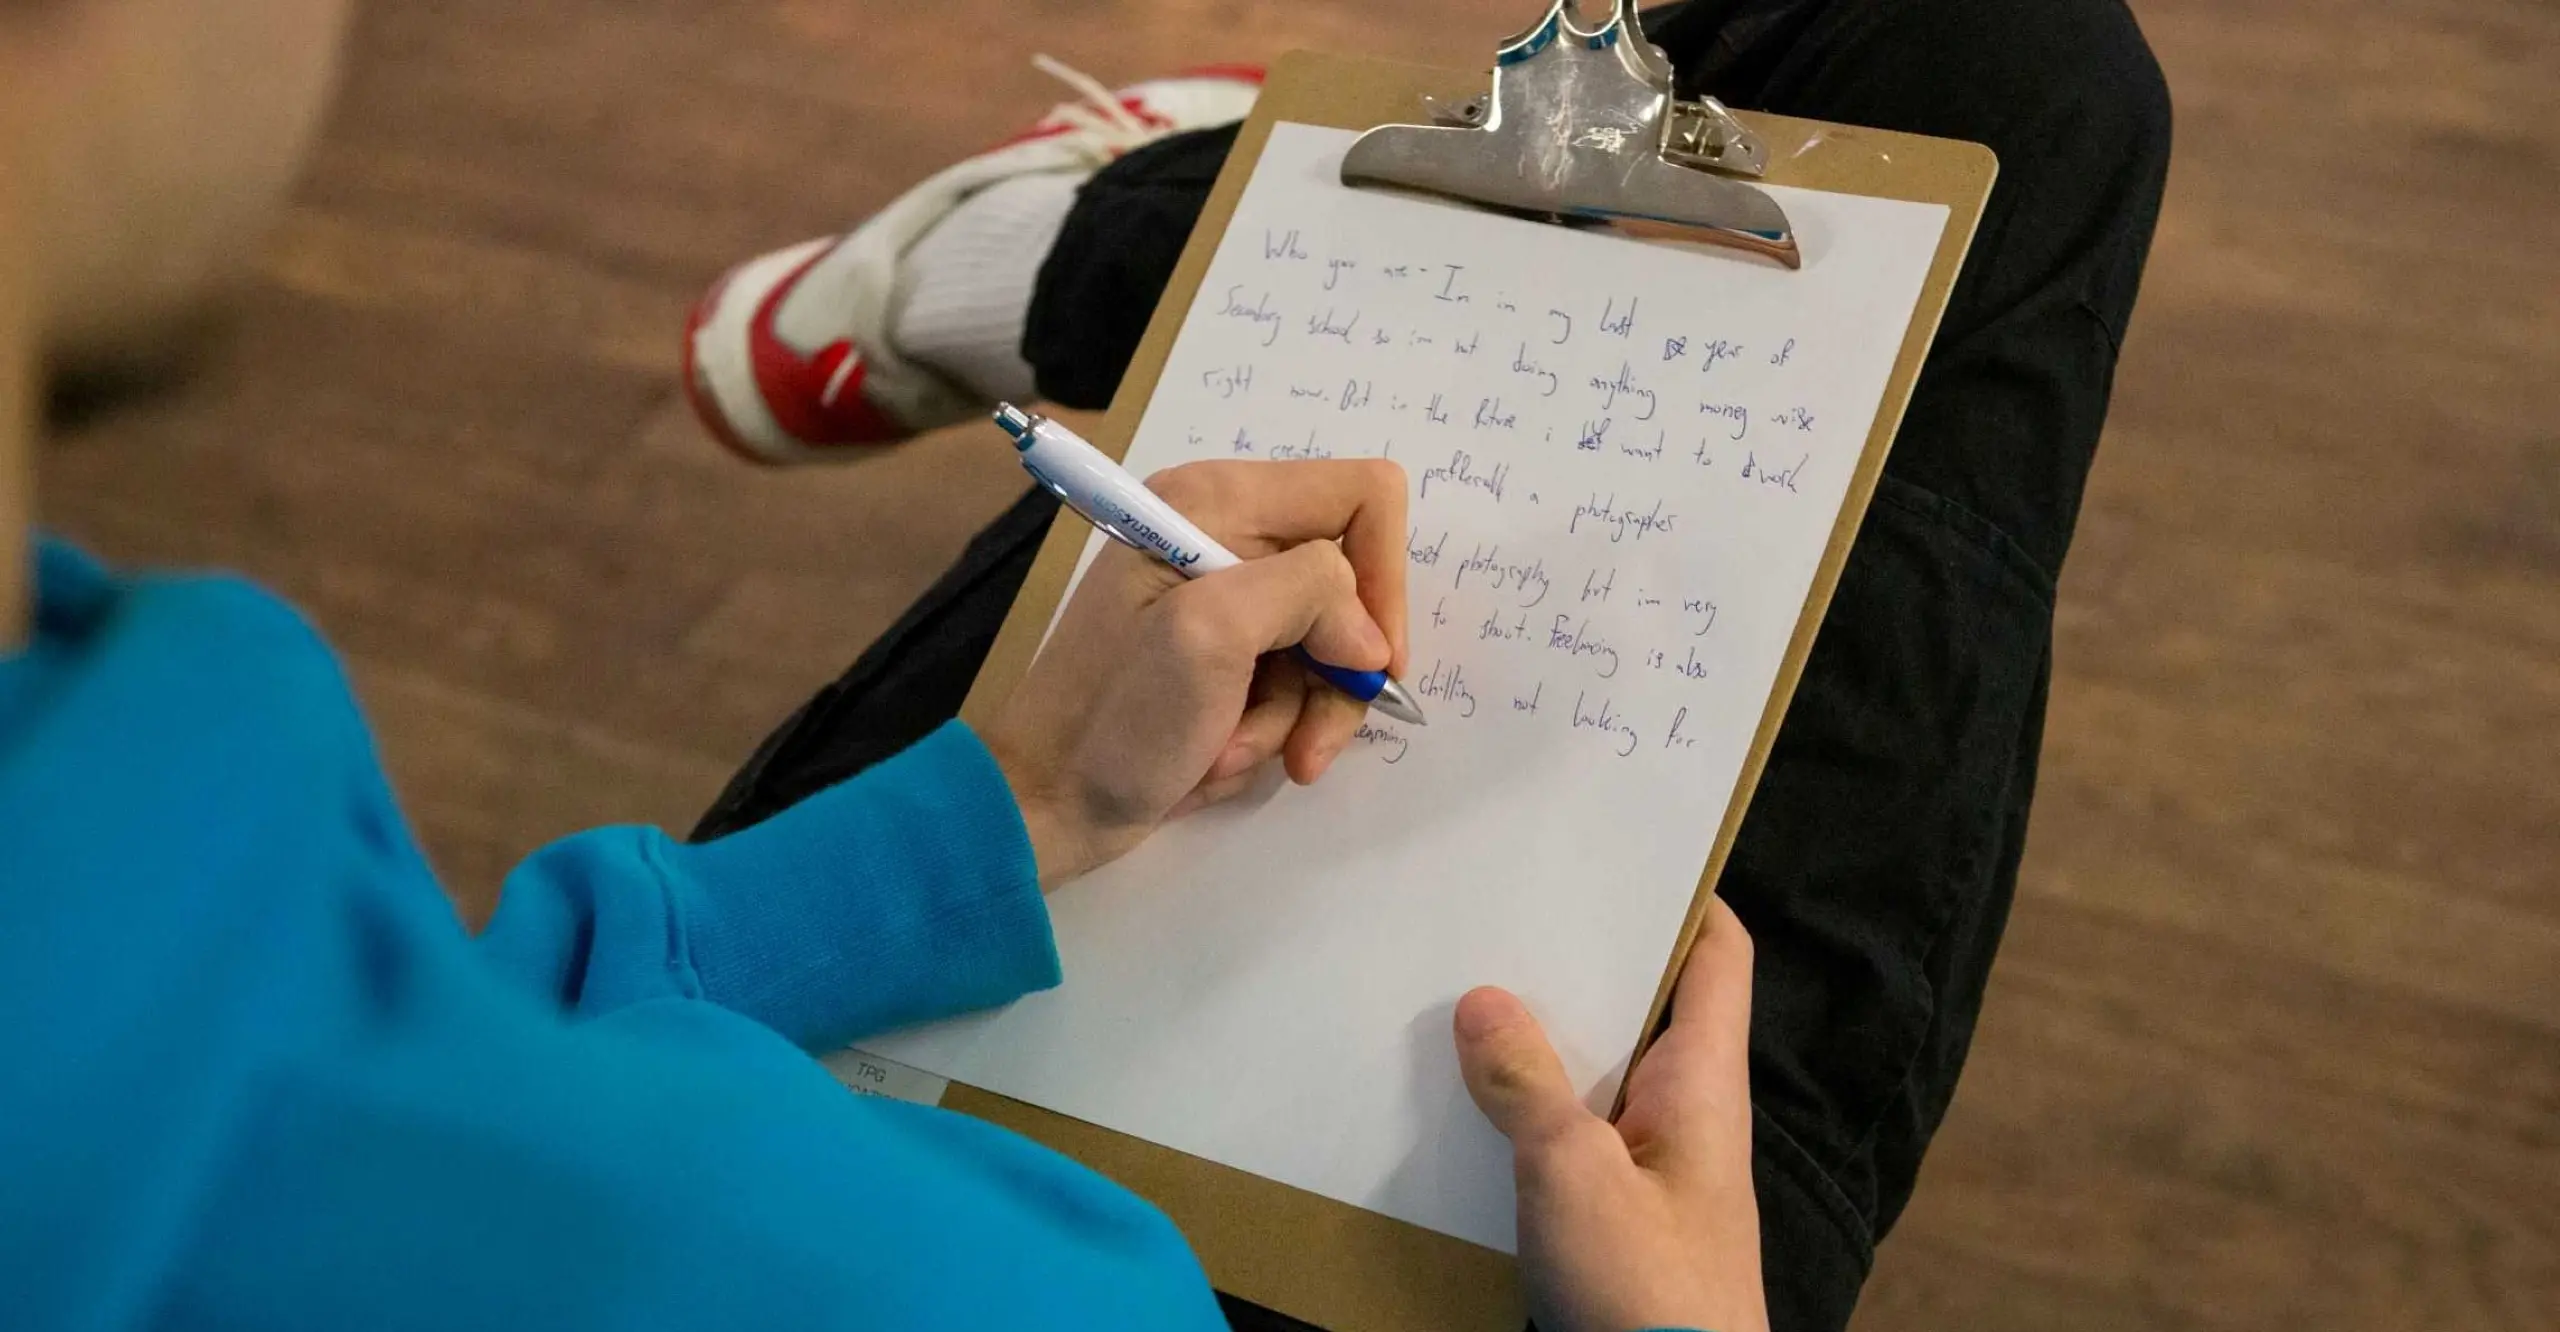 Who you are - Im in my last year of
Secondary school so im not doing anything money wise
right now. But in the future i want to work
in the creative preferably a photographer
street photography but im very
to shoot. Freelancing is also
chilling not looking for
learning
matrix
TPG